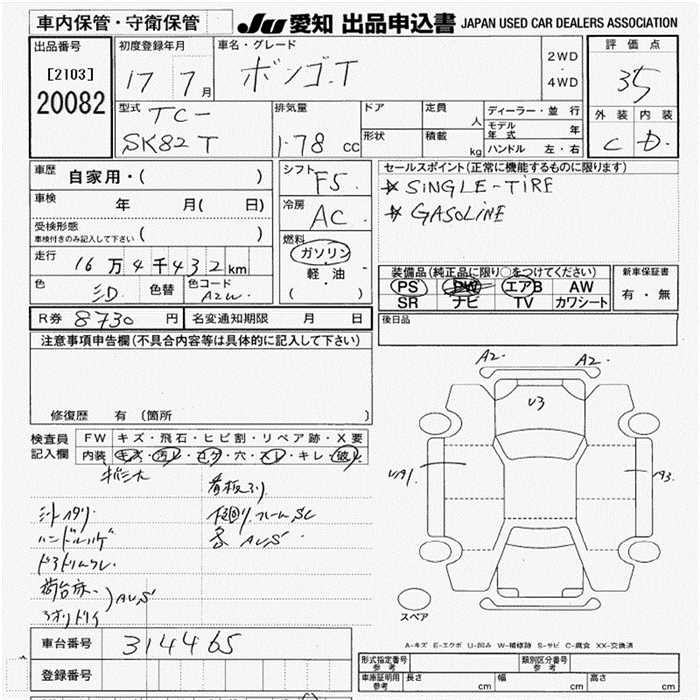 車内保管・守衛保管 JU 愛知 出品申込書 JAPAN USED CAR DEALERS ASSOCIATION
出品番号 初度登録年月 車名・グレード 評価点
[2103] 17 7月 ボンゴ.T 2WD・4WD 3.5
20082
型式 TC- 排気量 ドア 定員 人 ディーラー・並行 外装 内装
SK82T 1.78 cc 形状 積載 kg モデル年式 年 C D
ハンドル 左・右
車歴 自家用・( ) シフト F5 セールスポイント(正常に機能するものに限ります)
車検 年 月( 日) 冷房 AC ※ SINGLE-TIRE
受検形態 車検付きのみ記入して下さい ( ) ※ GASOLINE
走行 16万4千432km 燃料 ガソリン・軽油 ( )
装備品(純正品に限り○をつけてください) 新車保証書
色 色替 色コード A2W PS PW エアB AW 有・無
SR ナビ TV カワシート
R券 8730円 名変通知期限 月 日 後日品
注意事項申告欄(不具合内容等は具体的に記入して下さい)
A2. A2.
U3
修復歴 有(箇所 )
検査員記入欄 FW キズ・飛石・ヒビ割・リペア跡・X要
内装 キズ・汚レ・コゲ・穴・スレ・キレ・破レ
ハンドルハゲ
スペア
A-キズ E-エクボ U-凹み W-補修跡 S-サビ C-腐食 XX-交換済
車台番号 314465
登録番号
形式指定番号 参考 類別区分番号 参考
車庫証明用 参考 長さ cm 幅 cm 高さ cm